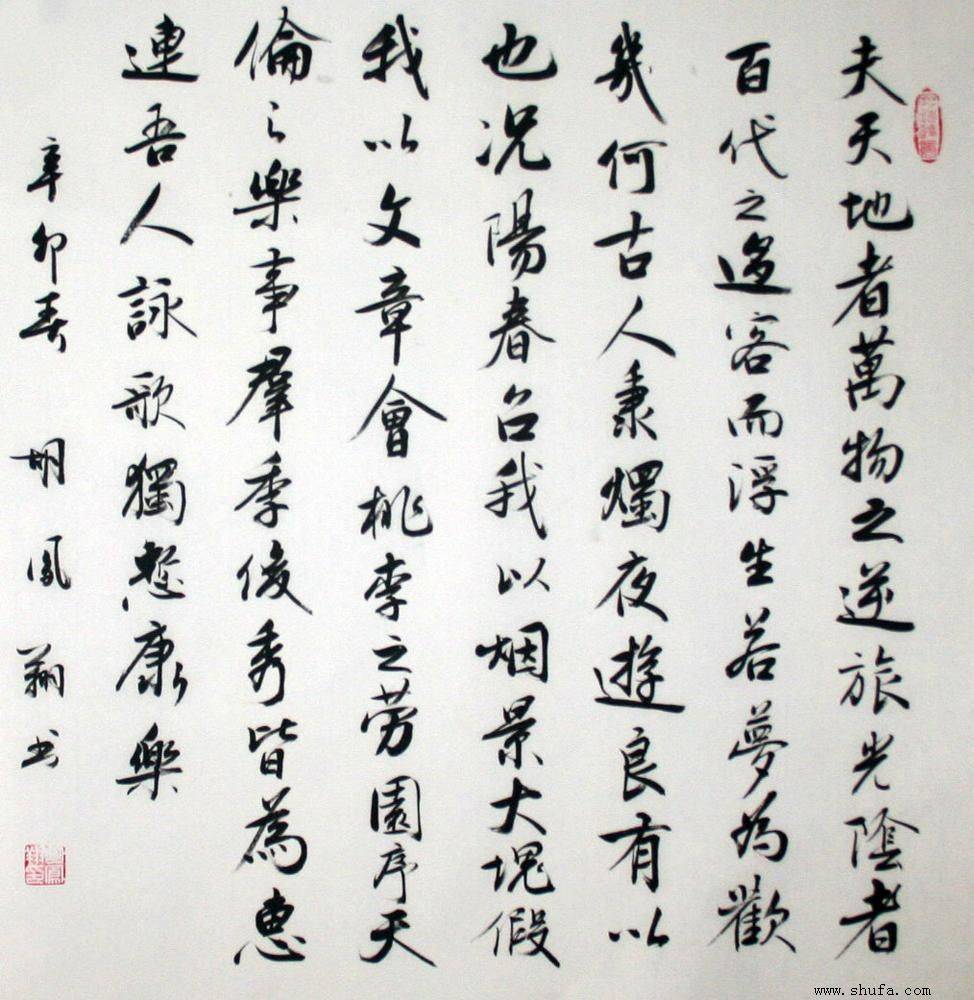 夫天地者萬物之逆旅光陰者
百代之過客而浮生若夢為歡
幾何古人秉燭夜遊良有以
也況陽春召我以烟景大塊假
我以文章會桃李之芳園序天
倫之樂事羣季俊秀皆為惠
連吾人詠歌獨慙康樂
辛卯春 胡鳳翔書
www.shufa.com